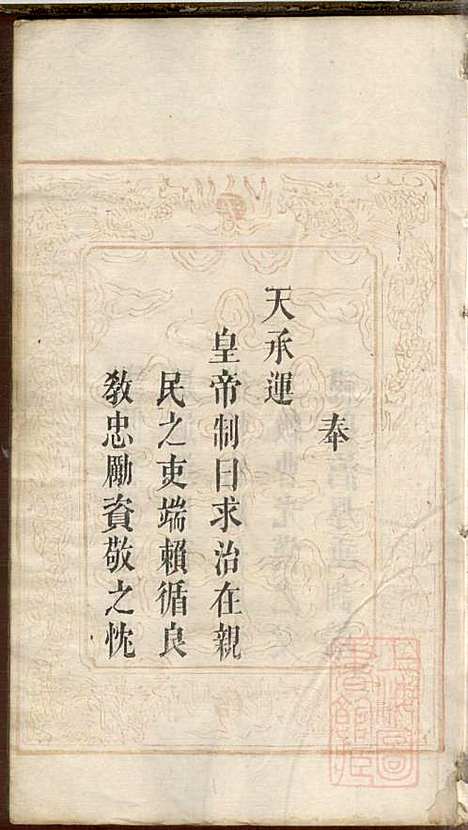 奉
天承運
皇帝制曰求治在親
民之吏端賴循良
教忠勵資敬之忱
上海圖
書館臧